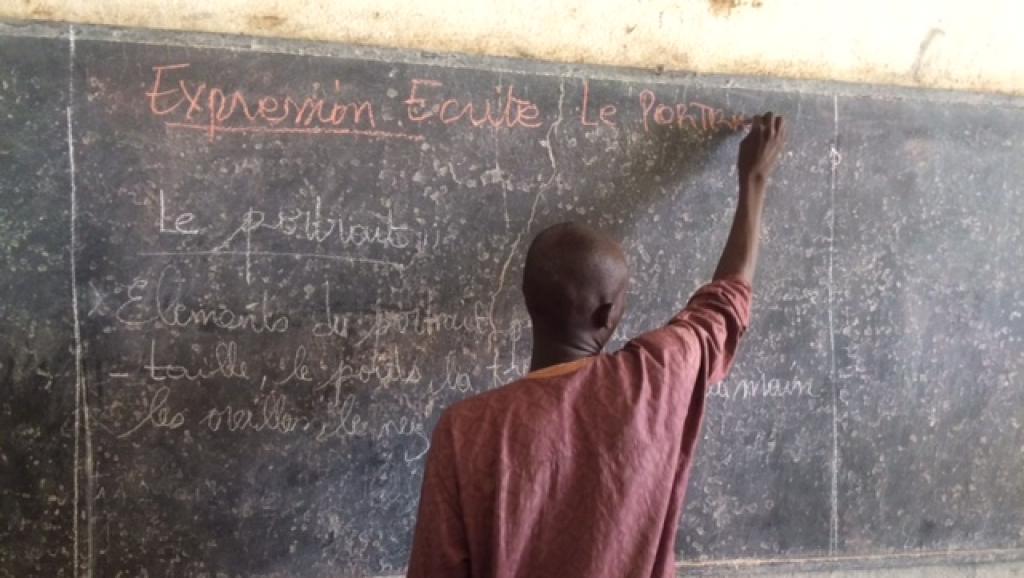 Expression Ecrite Le PORTRA
Le portrait
x Elements du portrait p
- taille, le poids, la main
les oreilles, le nez